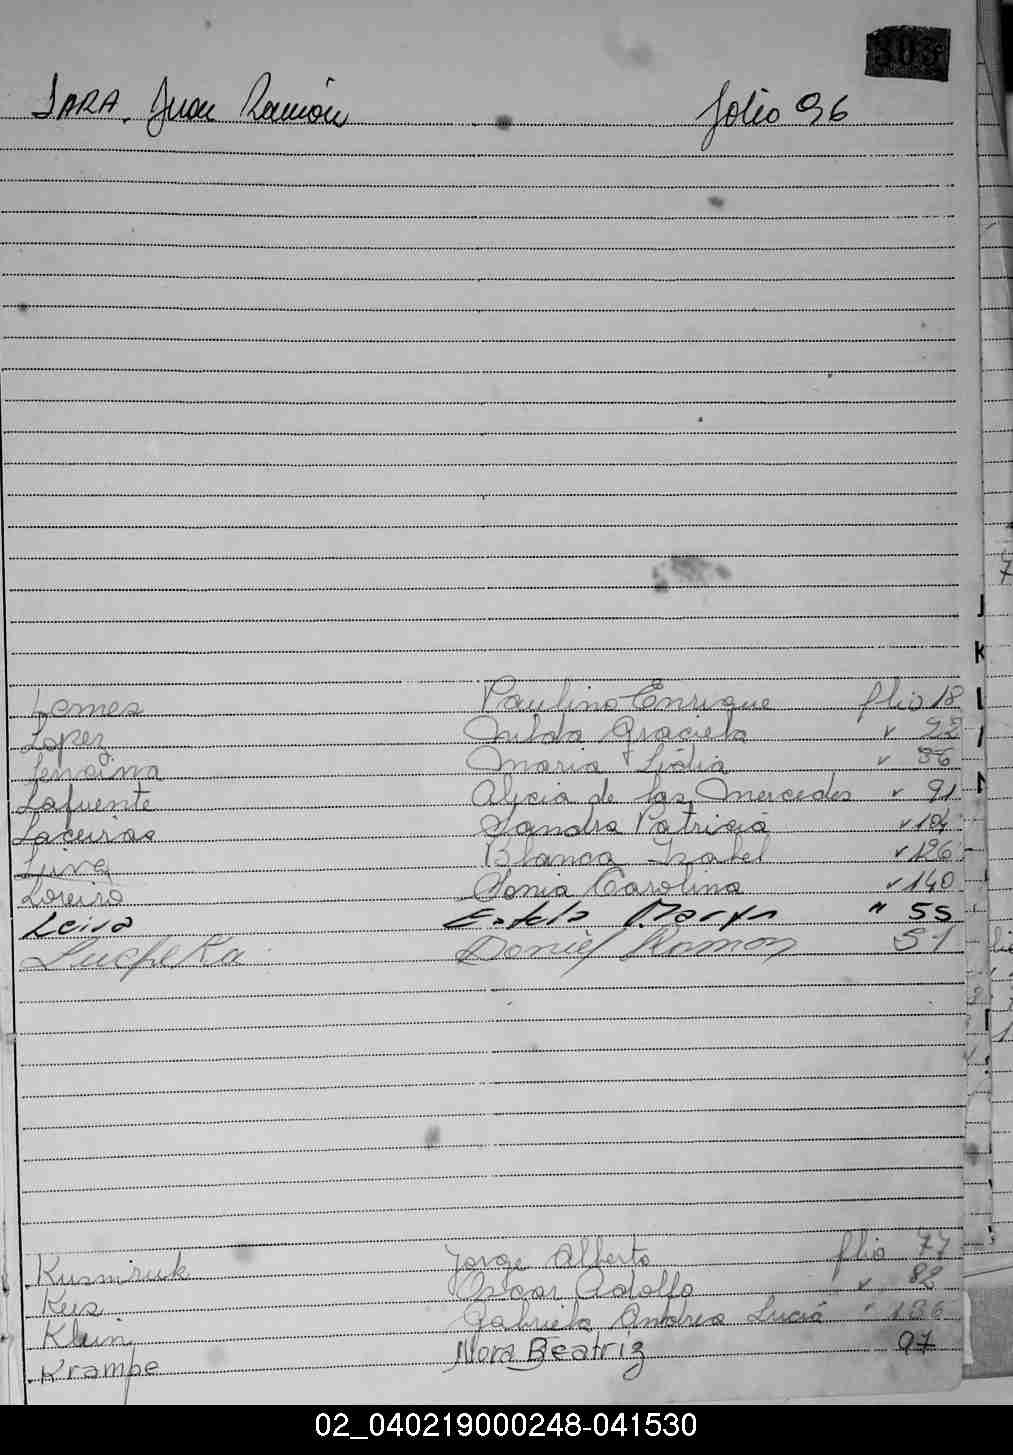 303
JARA, Juan Ramón folio 96
Paulino Enrique flio 18
Lopez Gilda Graciela " 22
Maria Lidia " 36
Lafuente Alicia de las Mercedes " 91
Laceiras Sandra Patricia " 104
Blanca Isabel " 126
Loreiro Sonia Carolina " 140
Leiva Estela " 55
Daniel Ramon 51
Jorge Alberto flio 77
Oscar Adolfo " 82
Klein Gabriela Andrea Lucia "
Krampe Nora Beatriz 97
J
K
L
02_040219000248-041530